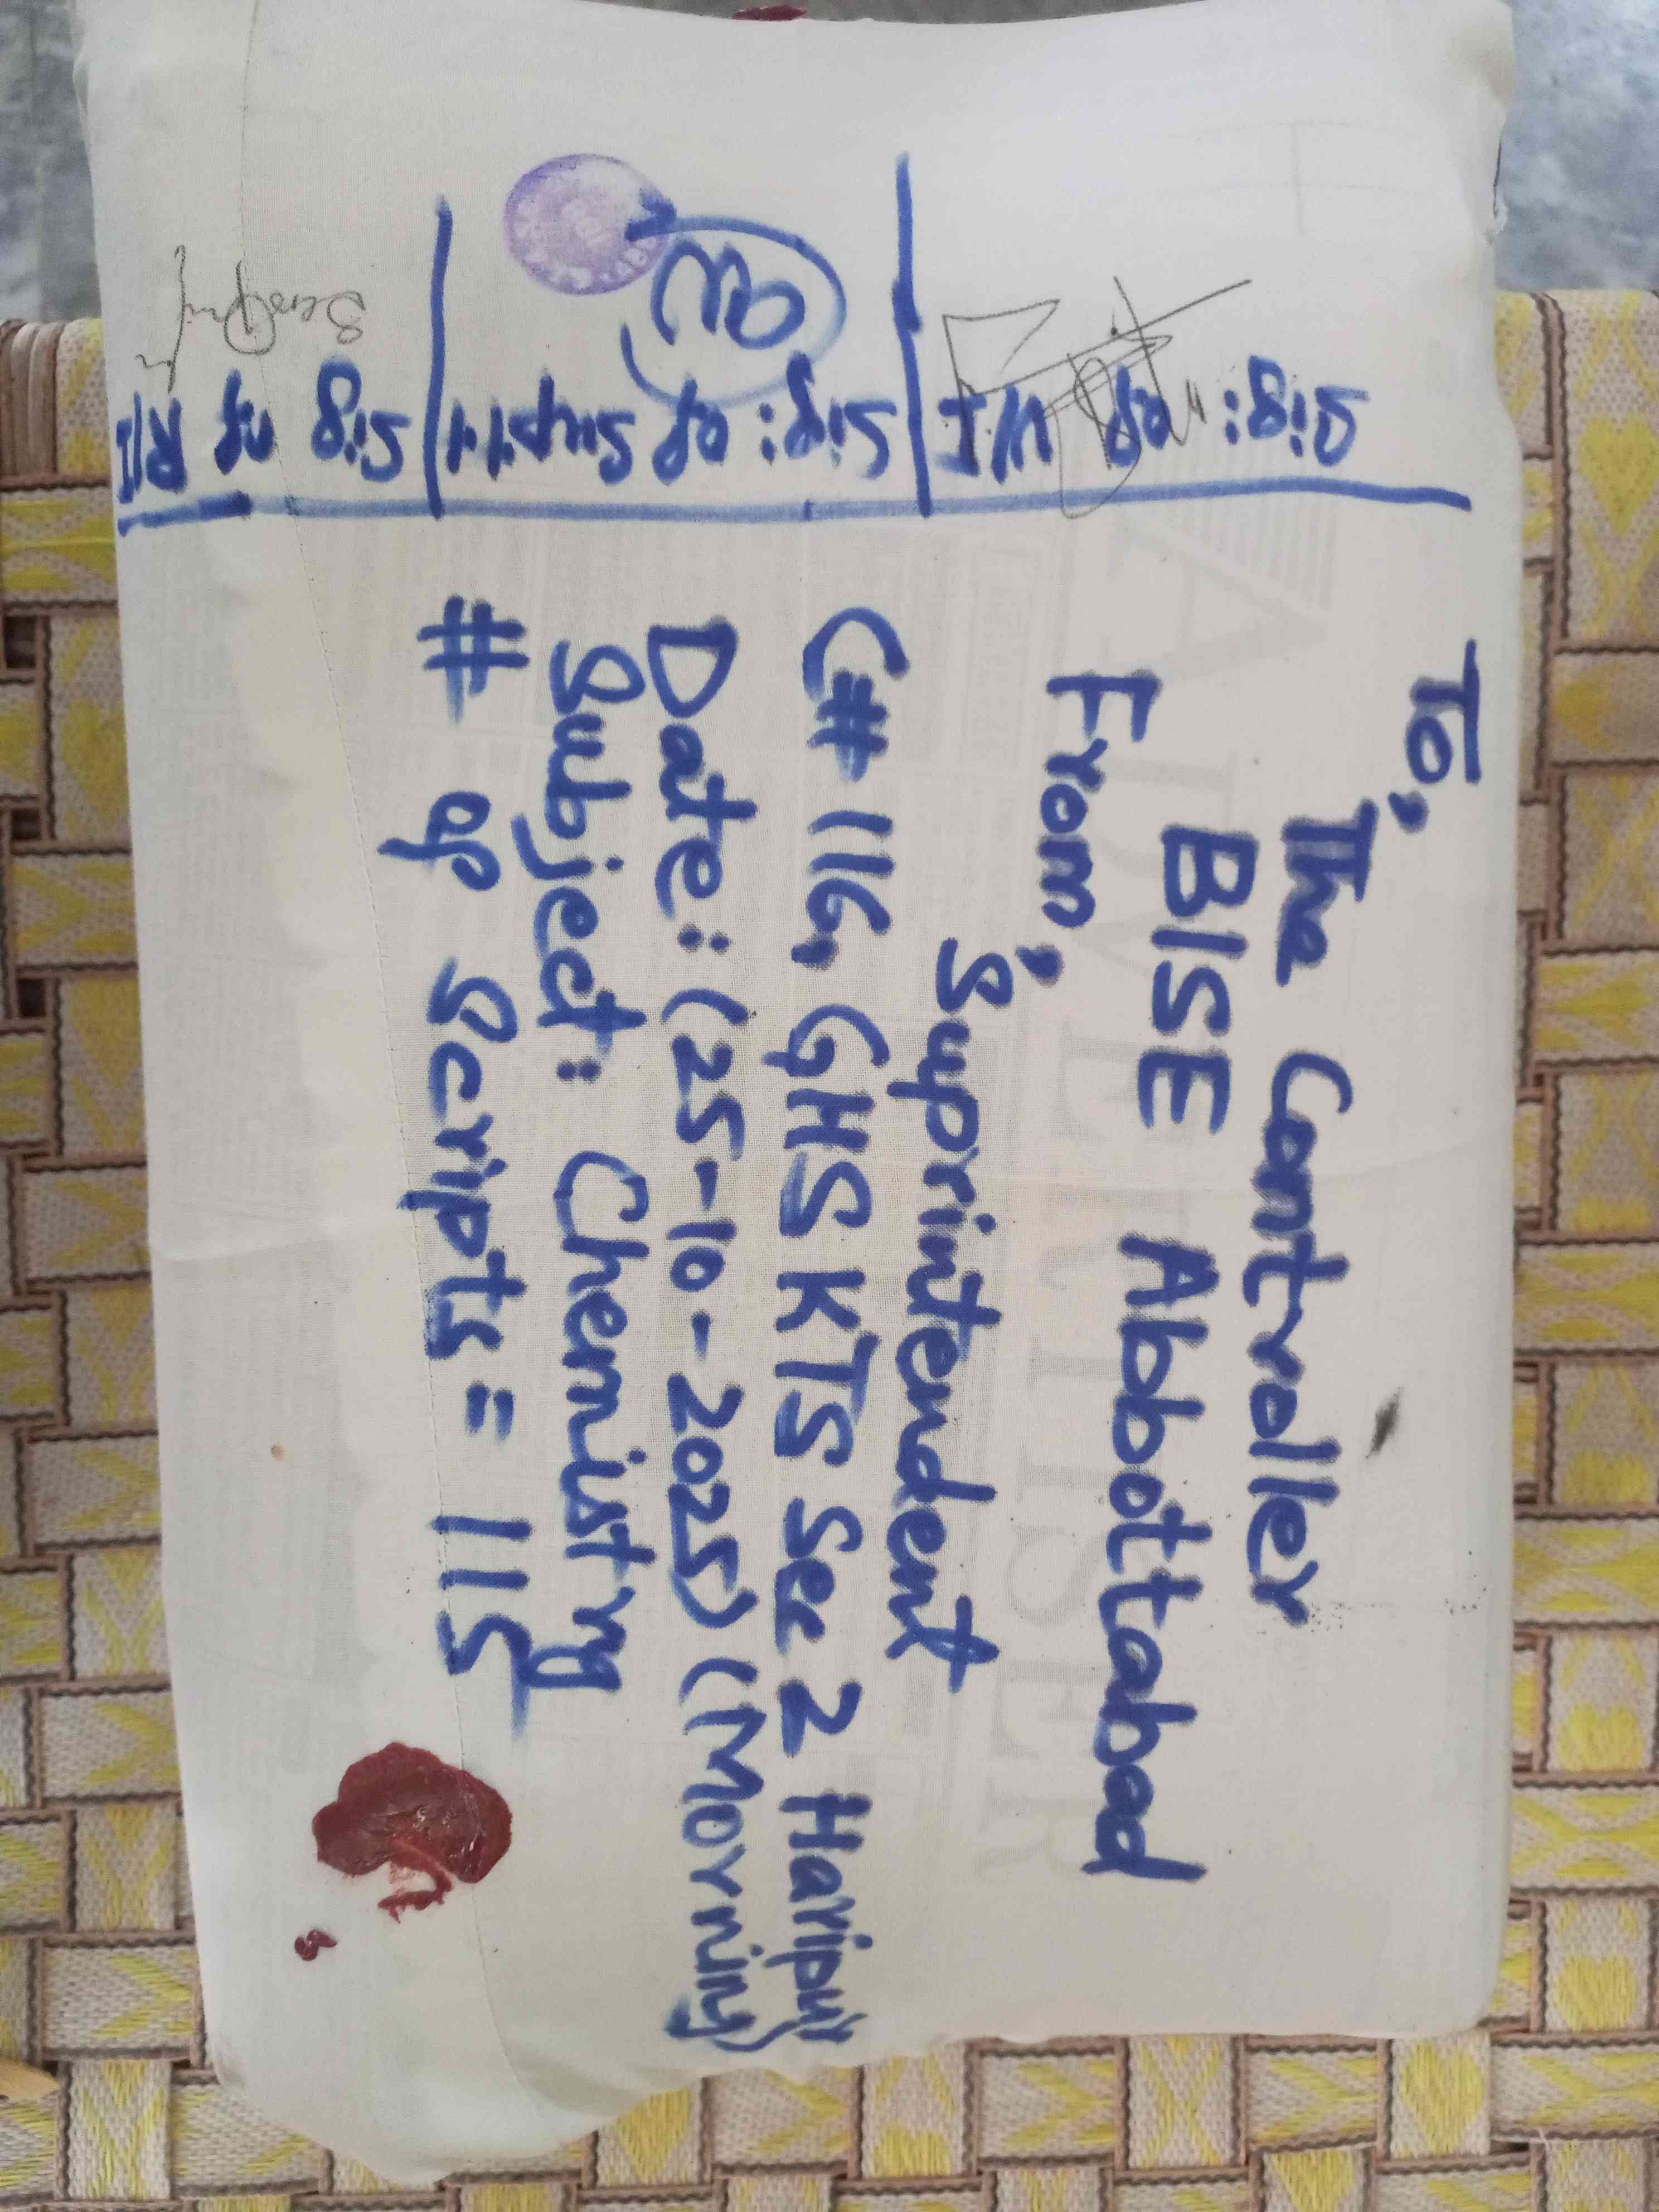 To,
The Controller
BISE Abbottabad
From,
Suprintendent
C# 116, GHS KTS Sec 2 Haripur
Date: (25-10-2025) (Morning)
Subject: Chemistry
# of Scripts = 115
Sig: of W/I
Sig: of Supdt:
Sig of R/I
ADVERTISER